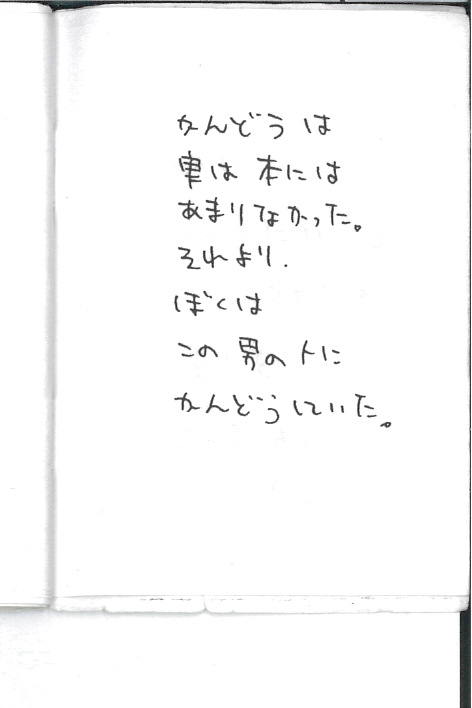 かんどうは
実は 本には
あまりなかった。
それより.
ぼくは
この 男の人に
かんどうしていた。